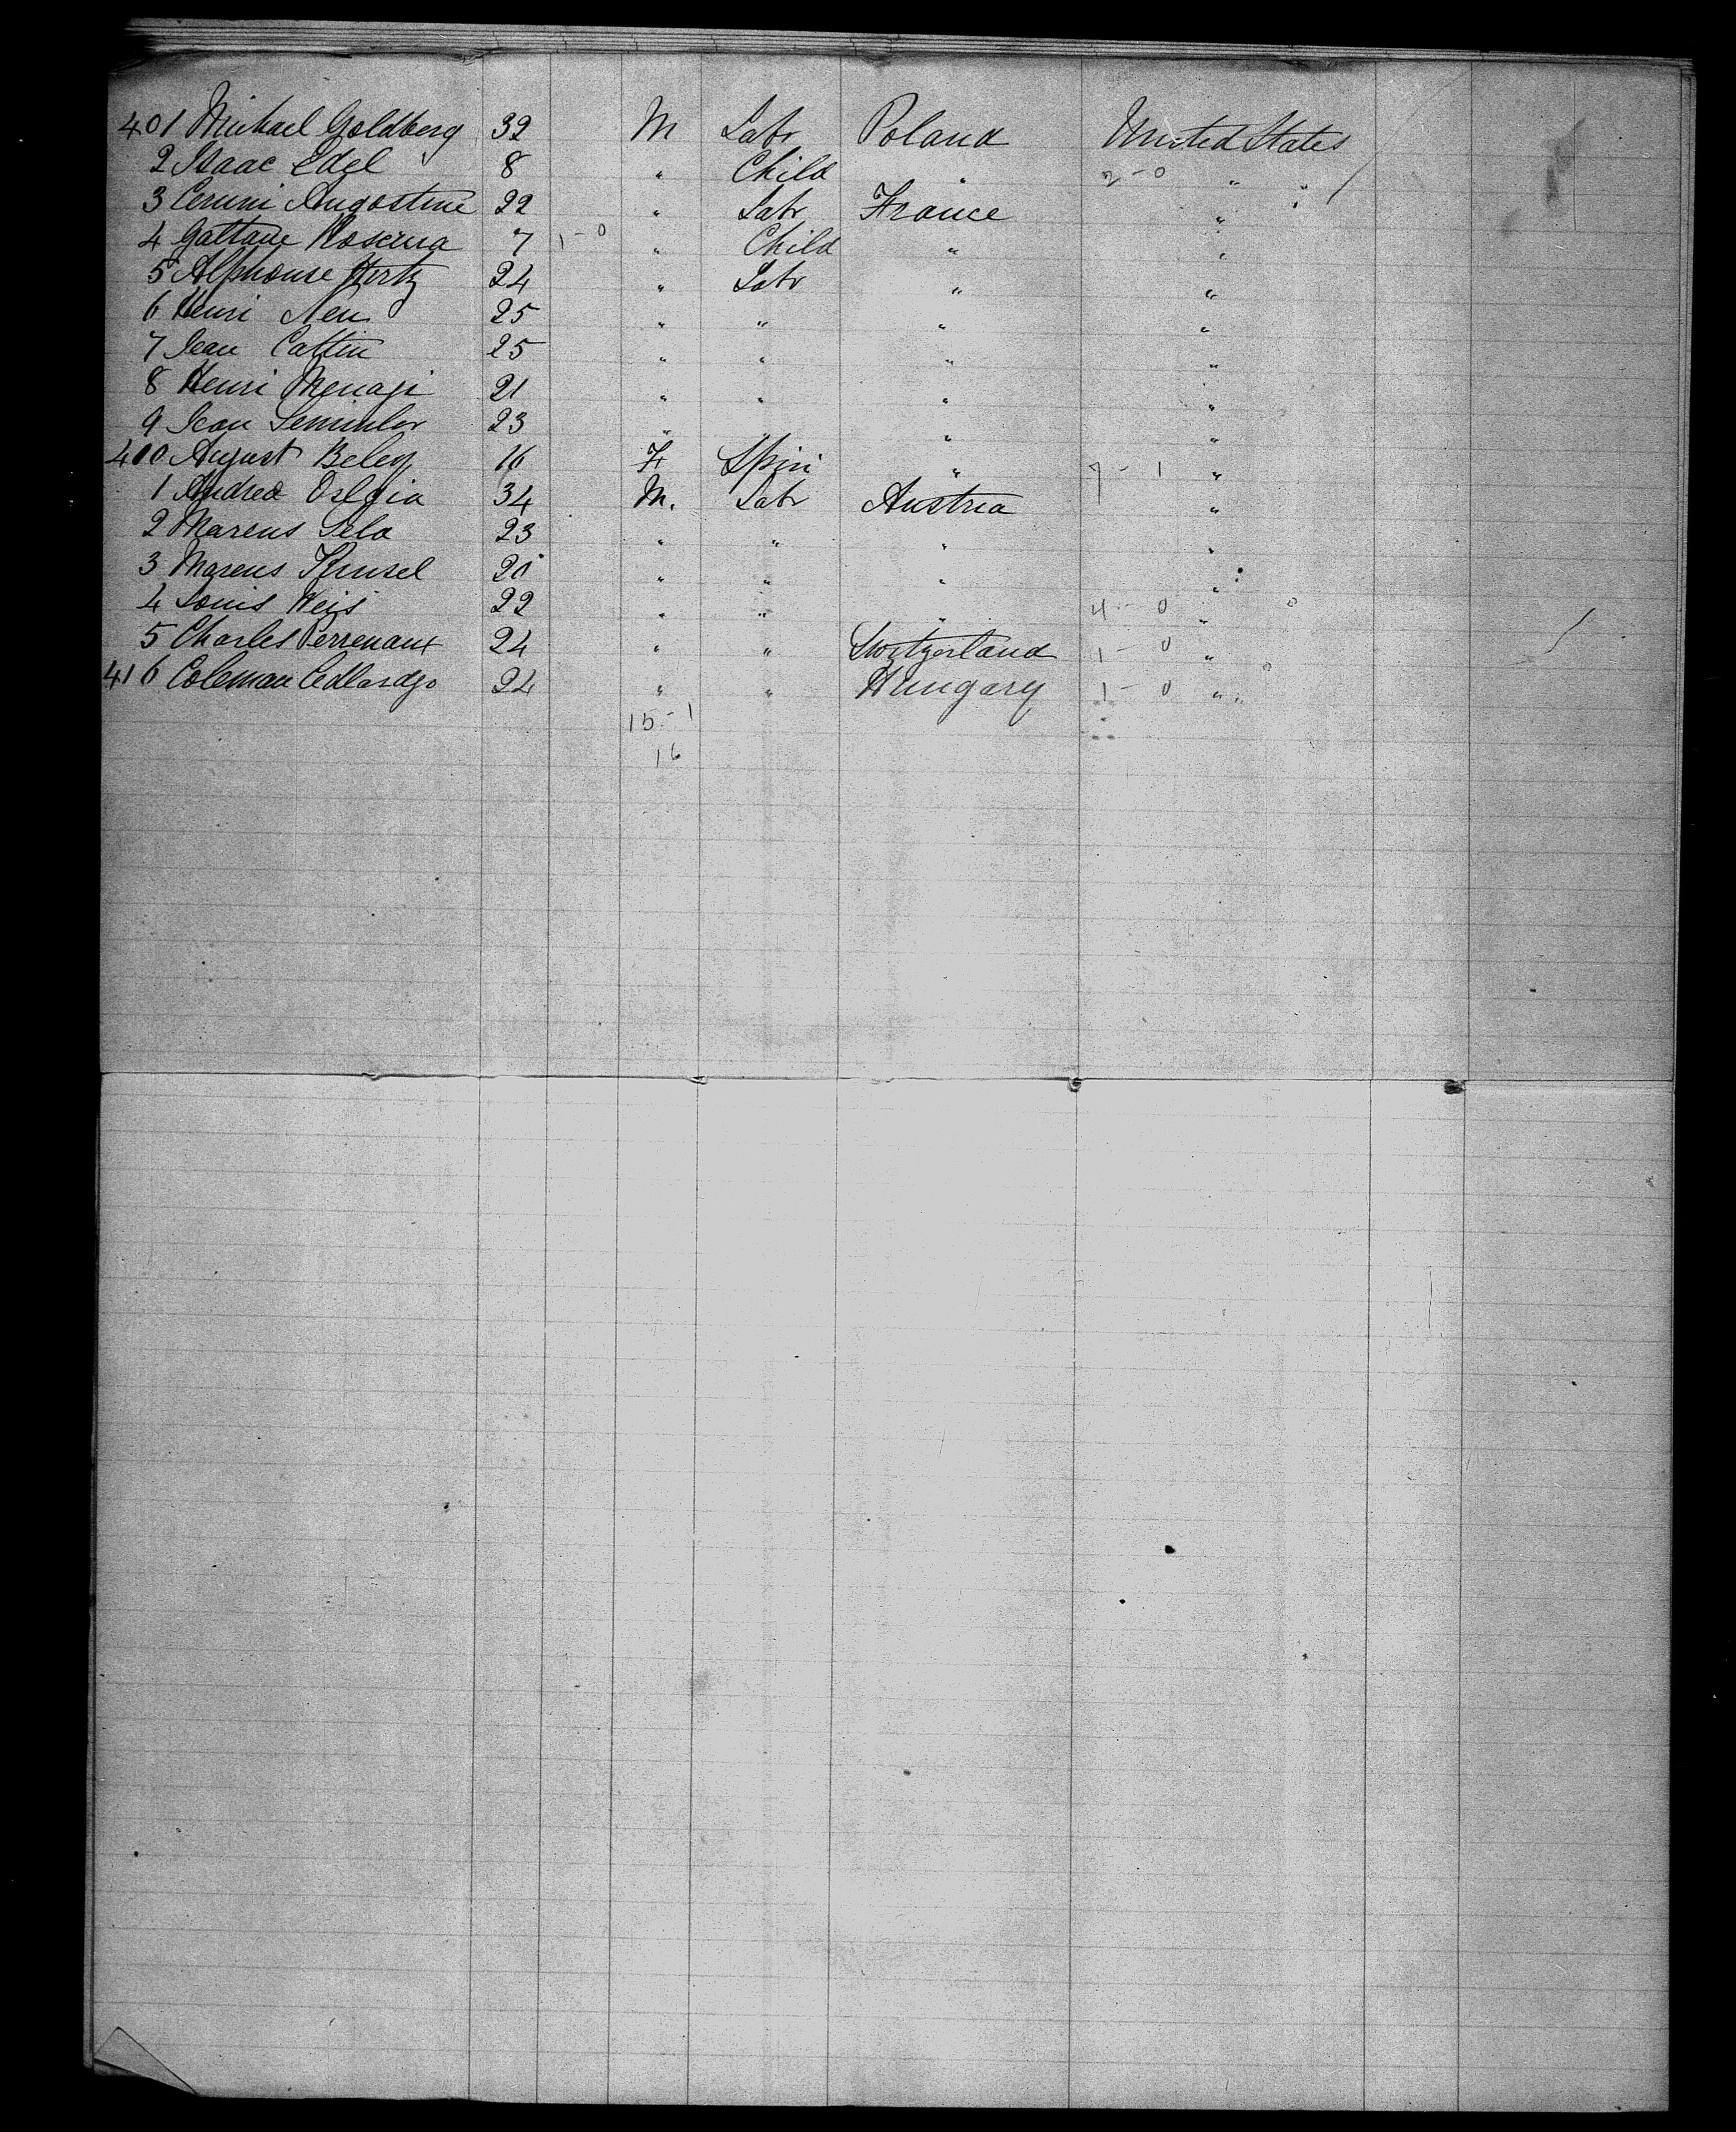 401 Michael Goldberg 32 M Labr Poland United States
2 Isaac Edel 8 " Child " 2-0 " "
3 Ceruni Augostine 22 " Labr France "
4 Gattane Roserna 7 1-0 " Child " "
5 Alphonse Hertz 24 " Labr " "
6 Henri Neu 25 " " " "
7 Jean Cattin 25 " " " "
8 Henri Menagi 21 " " " "
9 Jean Semmler 23 " " " "
400 August Beley 16 F Spin " 7-1 "
1 Andrea 34 M. Labr Austria "
2 Marcus Sela 23 " " " "
3 Marcus 20 " " " "
4 Louis Weis 22 " " " 4-0 "
5 Charles Perrenaux 24 " " Switzerland 1-0 "
416 Coleman 24 " " Hungary 1-0 "
15-1
16